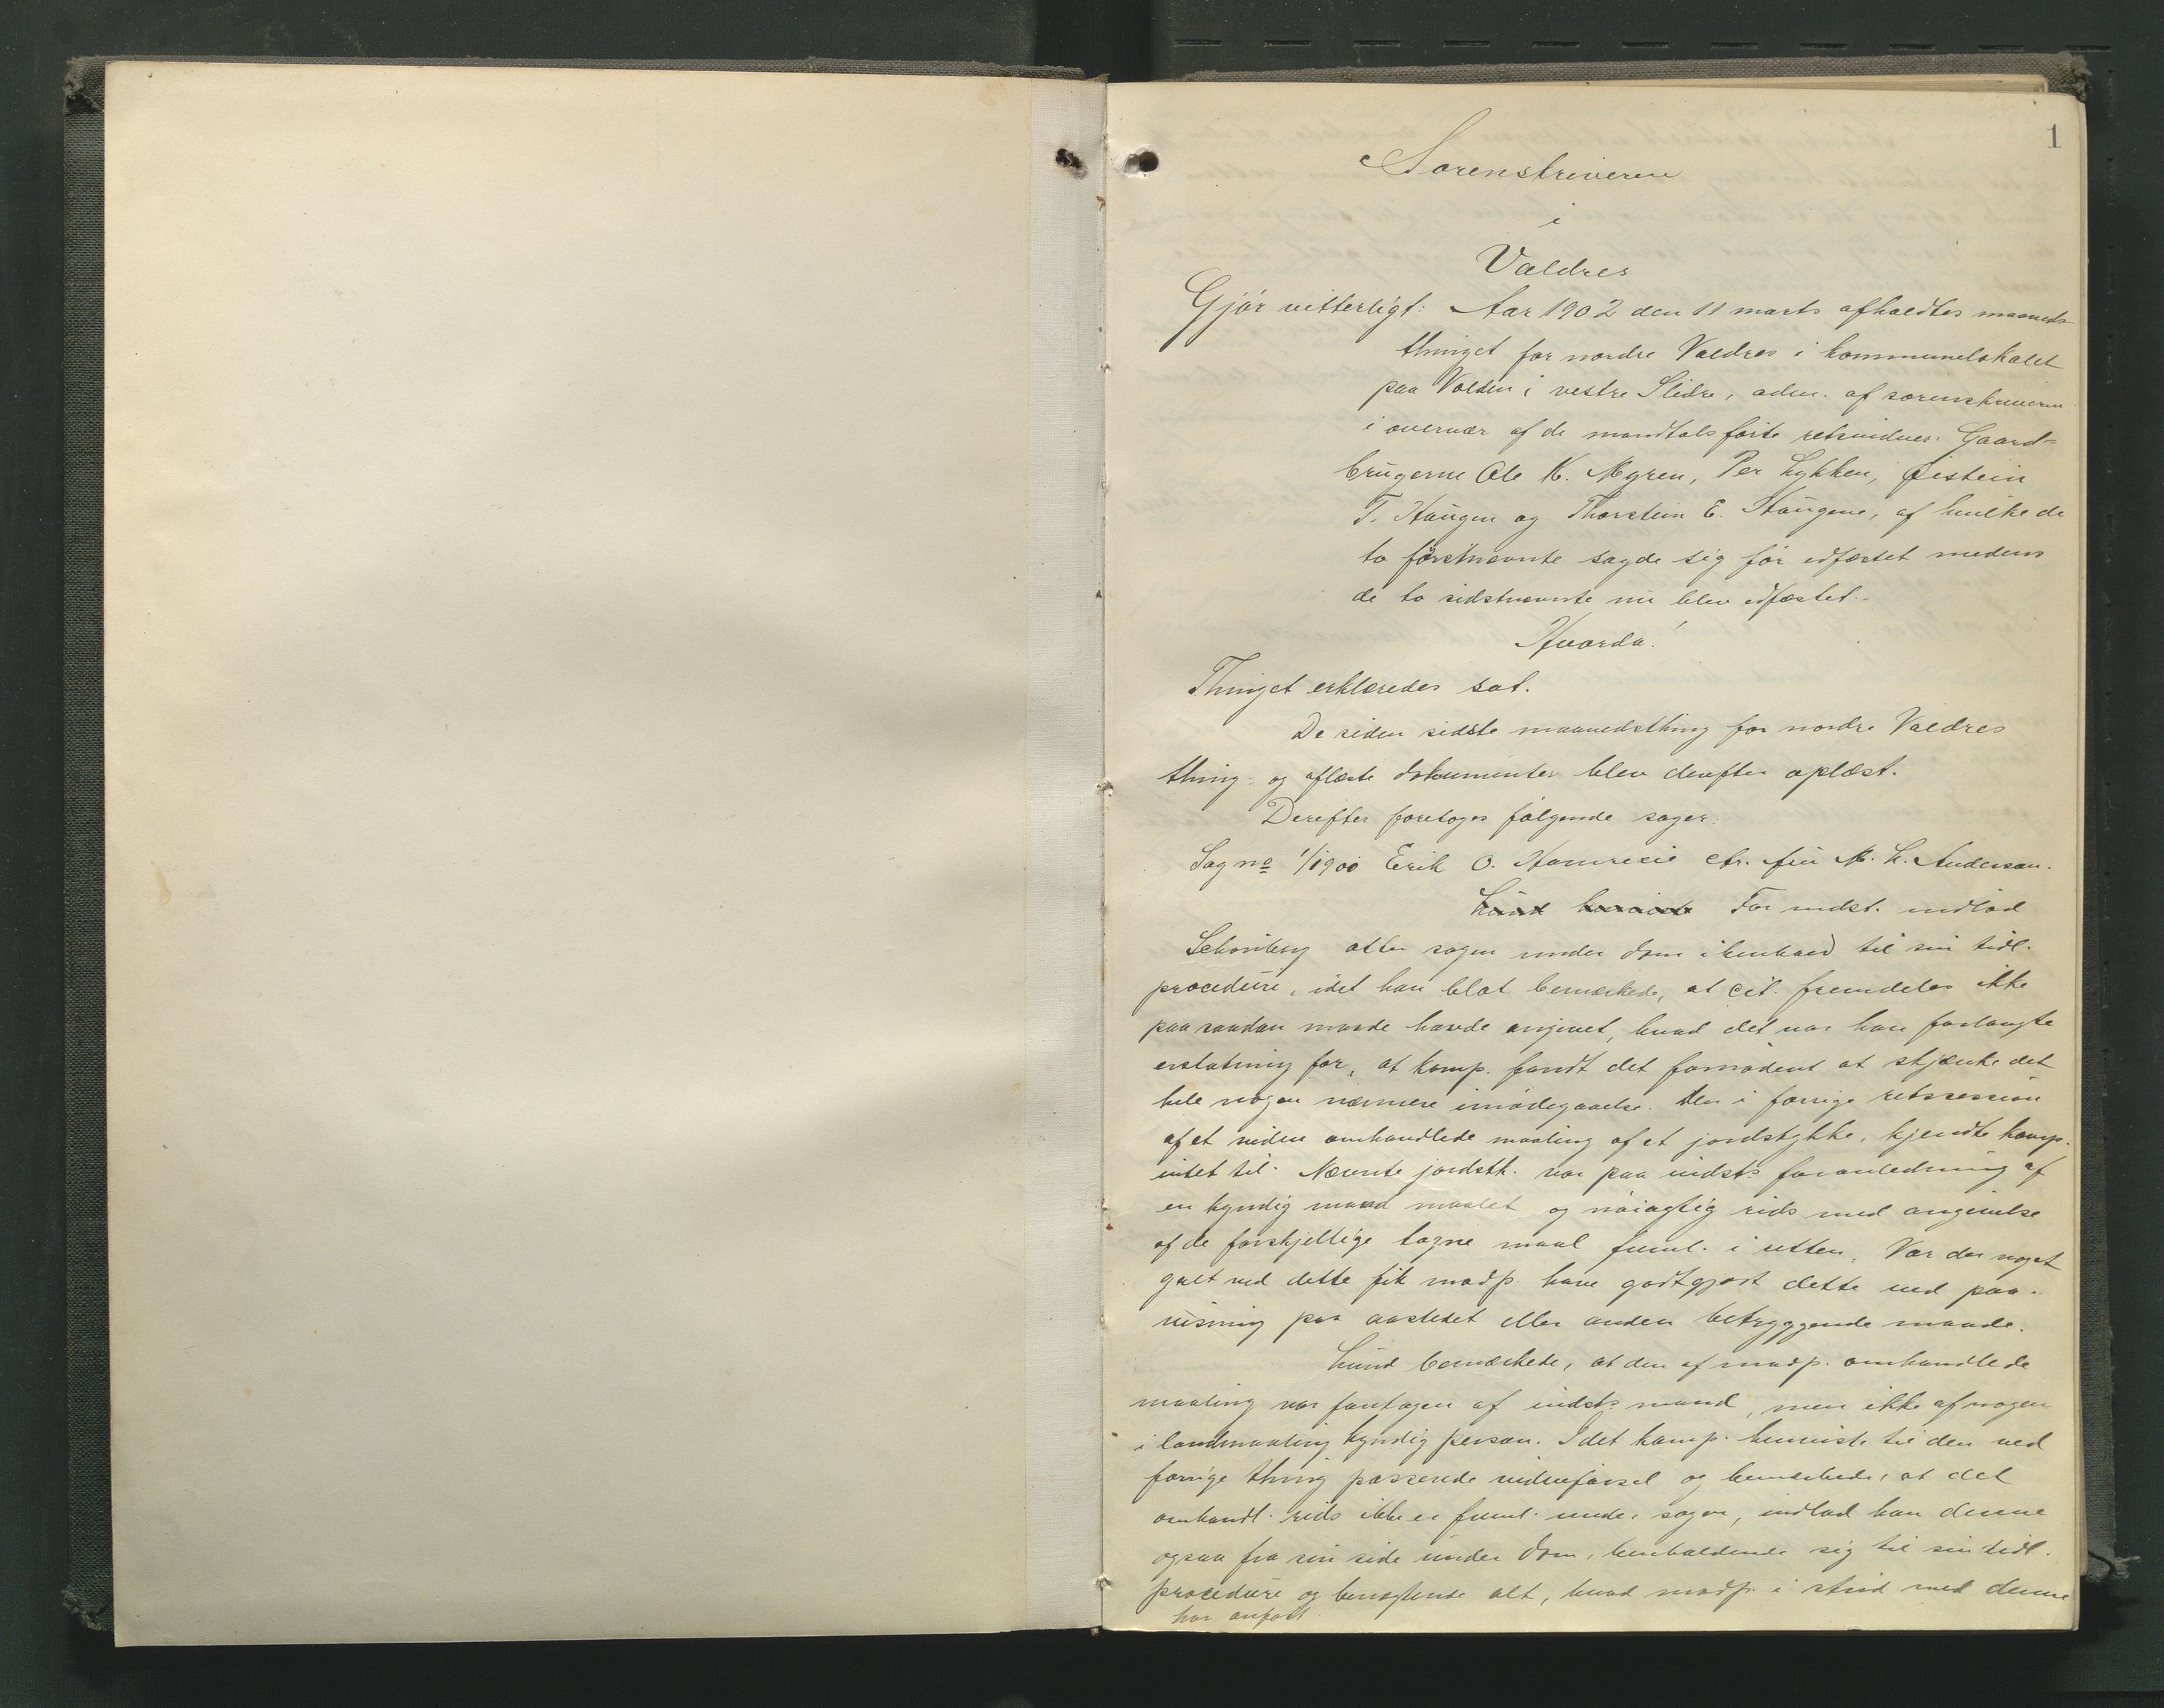 1
Sorenskriveren
i
Valdres
Gjör vitterligt: Aar 1902 den 11 marts afholdtes maaneds-
thinget for nordre Valdres i kommunelokalet
paa Volden i vestre Slidre, adm. af sorenskriveren
i overvær af de mandtalsförte retsvidner: Gaard-
brugerne Ole K. Myren, Per Lykken, Øistein
T. Haugen og Thorstein E. Haugene, af hvilke de
to förstnævnte sagde sig för edfæstet medens
de to sidstnævnte nu blev edfæstet.
Hvorda!
Thinget erklæredes sat.
De siden sidste maanedsthing for nordre Valdres
thing- og aflæste dokumenter blev derefter oplæst.
Derefter foretoges følgende sager:
Sag no 1/1900 Erik O. ctr. fru M. L. Anderson.
Lund henviste For indst. indlod
Schonberg atter sagen under dom i henhold til sin tidl.
procedure, idet han blot bemærkede, at cit. fremdeles ikke
paa saadan maade havde angivet, hvad det var han forlangte
erstatning for, at komp. fandt det fornødent at skjænke det
hele nogen nærmere imödegaaelse. Den i forrige retssession
af et vidne omhandlede maaling af et jordstykke, kjendte komp.
intet til. Nævnte jordstk. var paa indsts foranledning af
en kyndig mand maalet og nöiagtig rids med angivelse
af de forskjellige tagne maal freml. i retten. Var der noget
galt ved dette fik modp. have godtgjort dette ved paa-
visning paa aastedet eller anden betryggende maade.
Lund bemærkede, at den af modp. omhandlede
maaling var foretagen af indsts mand, men ikke af nogen
i landmaaling kyndig person. Idet komp. henviste til den ved
forrige thing passerede vidneförsel og bemærkede, at det
omhandl. rids ikke er freml. under sagen, indlod han denne
ogsaa fra sin side under dom, henholdende sig til sin tidl.
procedure og benegtende alt, hvad modp. i strid med denne
har anfört.